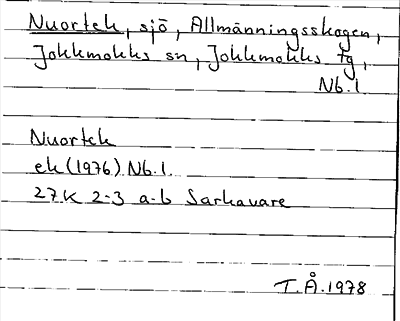 Nuortek, sjö, Allmänningsskogen,
Jokkmokks sn, Jokkmokks tg,
Nb.l.
Nuortek
ek (1976) Nb.l.
27K 2-3 a-b Sarkavare
T.Å.1978